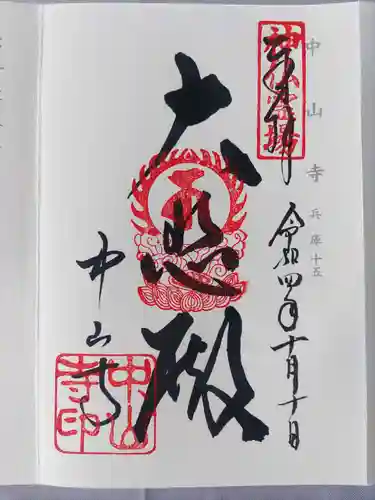 中山寺 兵庫十五
奉拝
神仏霊場
令和四年十月十日
大悲殿
中山寺
中山
寺印